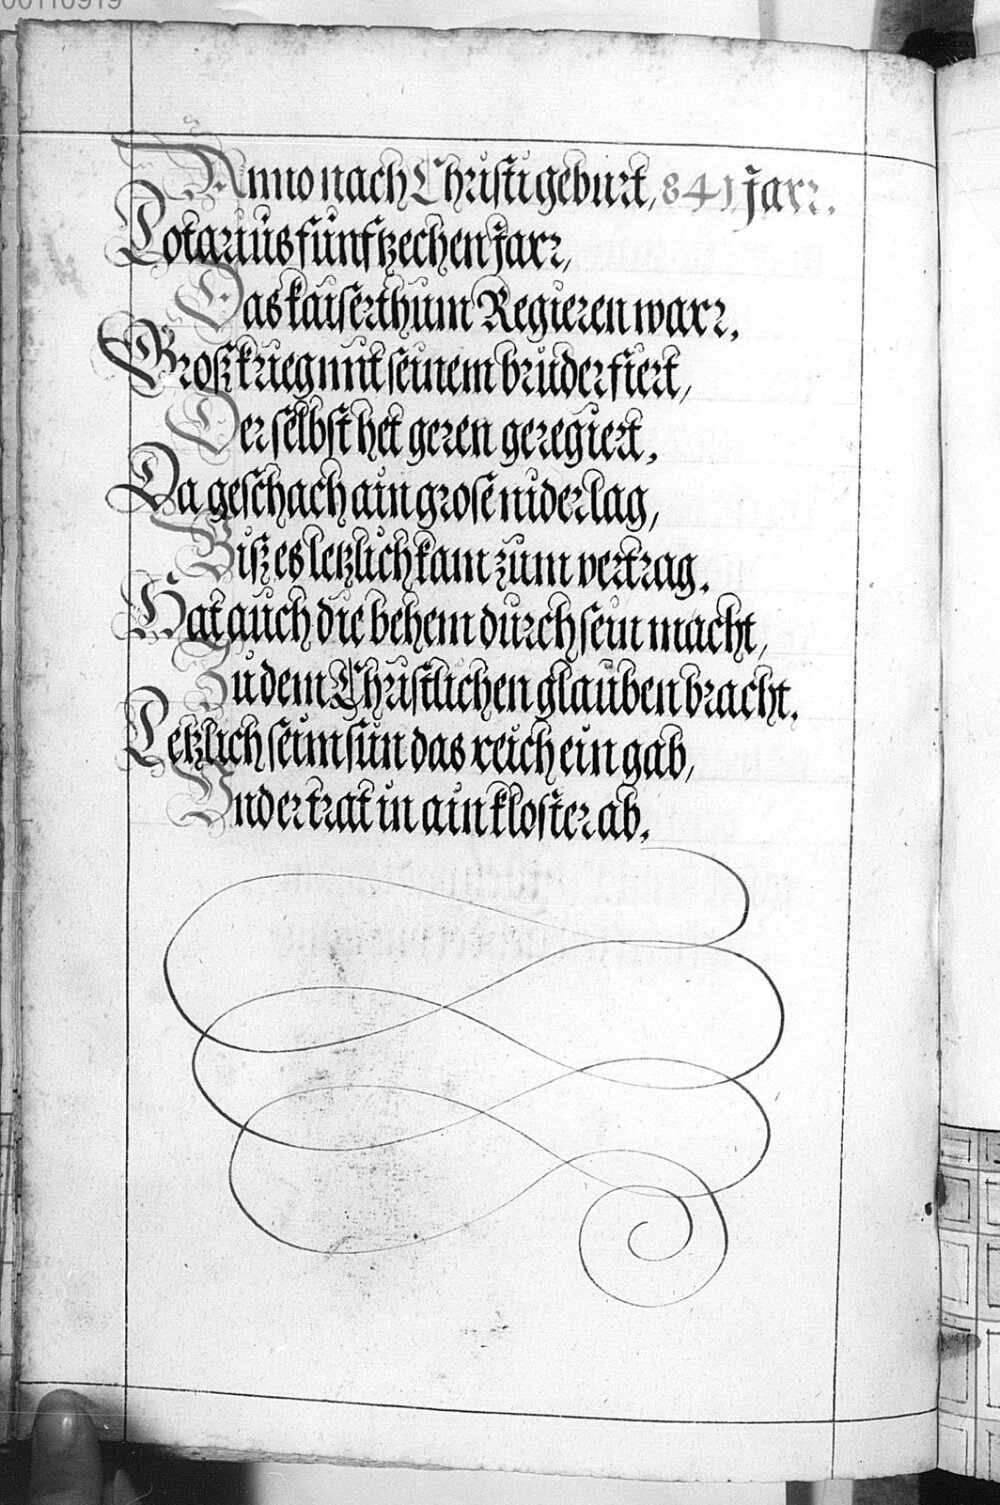 00110919
Anno nach Christi geburt, 841 Jarr.
Lotarius fünfzechen Jarr,
Das kaiserthum Regieren warr.
Groß krieg mit seinem bruder fiert,
Der selbst het geren geregiert.
Da geschach ain grose niderlag,
Biß es letzlich kam zum vertrag.
Hat auch die behem durch sein macht,
Zu dem Christlichen glauben bracht.
Letzlich seim sun das reich ein gab,
Und er trat in ain kloster ab.